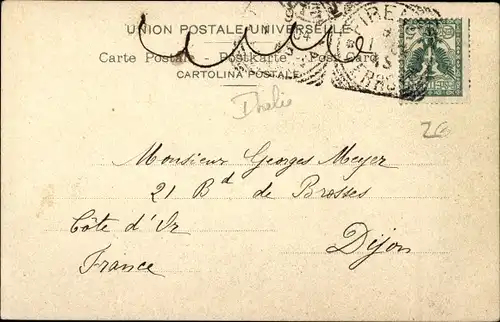 UNION POSTALE UNIVERSELLE
Carte Postale Postkarte Post Card
CARTOLINA POSTALE
FIRENZE
Italie
26
Monsieur Georges Meyer
21 Bd de Brosses
Côte d'Or
Dijon
France